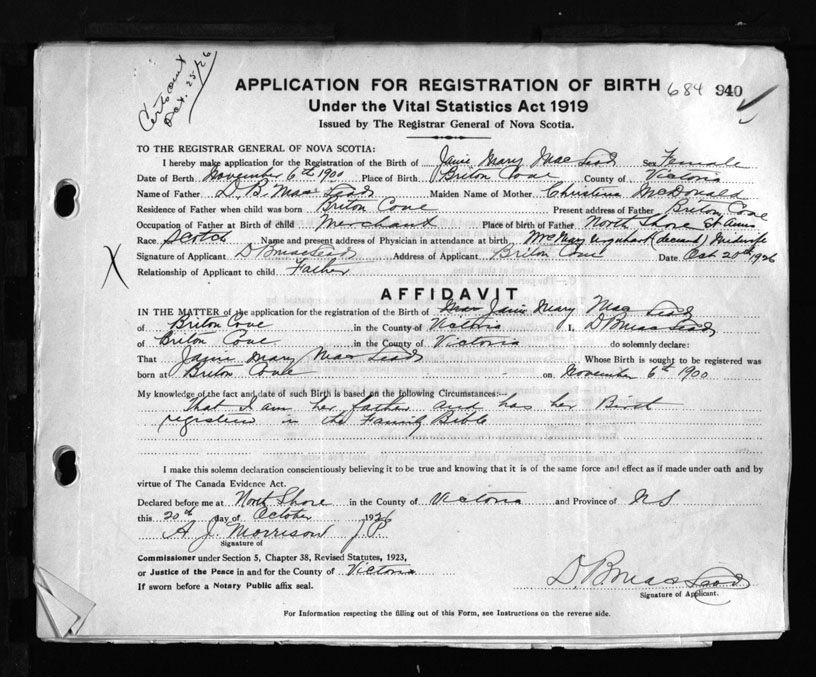 Cert sent
Oct. 25/26
APPLICATION FOR REGISTRATION OF BIRTH 684 940
Under the Vital Statistics Act 1919
Issued by The Registrar General of Nova Scotia.
TO THE REGISTRAR GENERAL OF NOVA SCOTIA:
I hereby make application for the Registration of the Birth of Janie Mary MacLeod Sex Female
Date of Berth November 6th 1900 Place of Birth Briton Cove County of Victoria
Name of Father D. B. MacLeod Maiden Name of Mother Christina McDonald
Residence of Father when child was born Briton Cove Present address of Father Briton Cove
Occupation of Father at Birth of child Merchant Place of birth of Father North Shore St Anns
Race Scotch Name and present address of Physician in attendance at birth Mrs Mary Urquhart (deceased) Midwife
Signature of Applicant D B MacLeod Address of Applicant Briton Cove Date Oct 20th 1926
Relationship of Applicant to child Father
AFFIDAVIT
IN THE MATTER of the application for the registration of the Birth of Janie Mary MacLeod
of Briton Cove in the County of Victoria I, D B MacLeod
of Briton Cove in the County of Victoria do solemnly declare:
That Janie Mary MacLeod Whose Birth is sought to be registered was
born at Briton Cove on November 6th 1900
My knowledge of the fact and date of such Birth is based on the following Circumstances:--
That I am her father and has her Birth
registered in the Family Bible
I make this solemn declaration conscientiously believing it to be true and knowing that it is of the same force and effect as if made under oath and by
virtue of The Canada Evidence Act.
Declared before me at North Shore in the County of Victoria and Province of N S
this 20th day of October 1926
A. J. Morrison J.P.
Signature of
Commissioner under Section 5, Chapter 38, Revised Statutes, 1923,
or Justice of the Peace in and for the County of Victoria
If sworn before a Notary Public affix seal.
D. B MacLeod
Signature of Applicant.
For Information respecting the filling out of this Form, see Instructions on the reverse side.